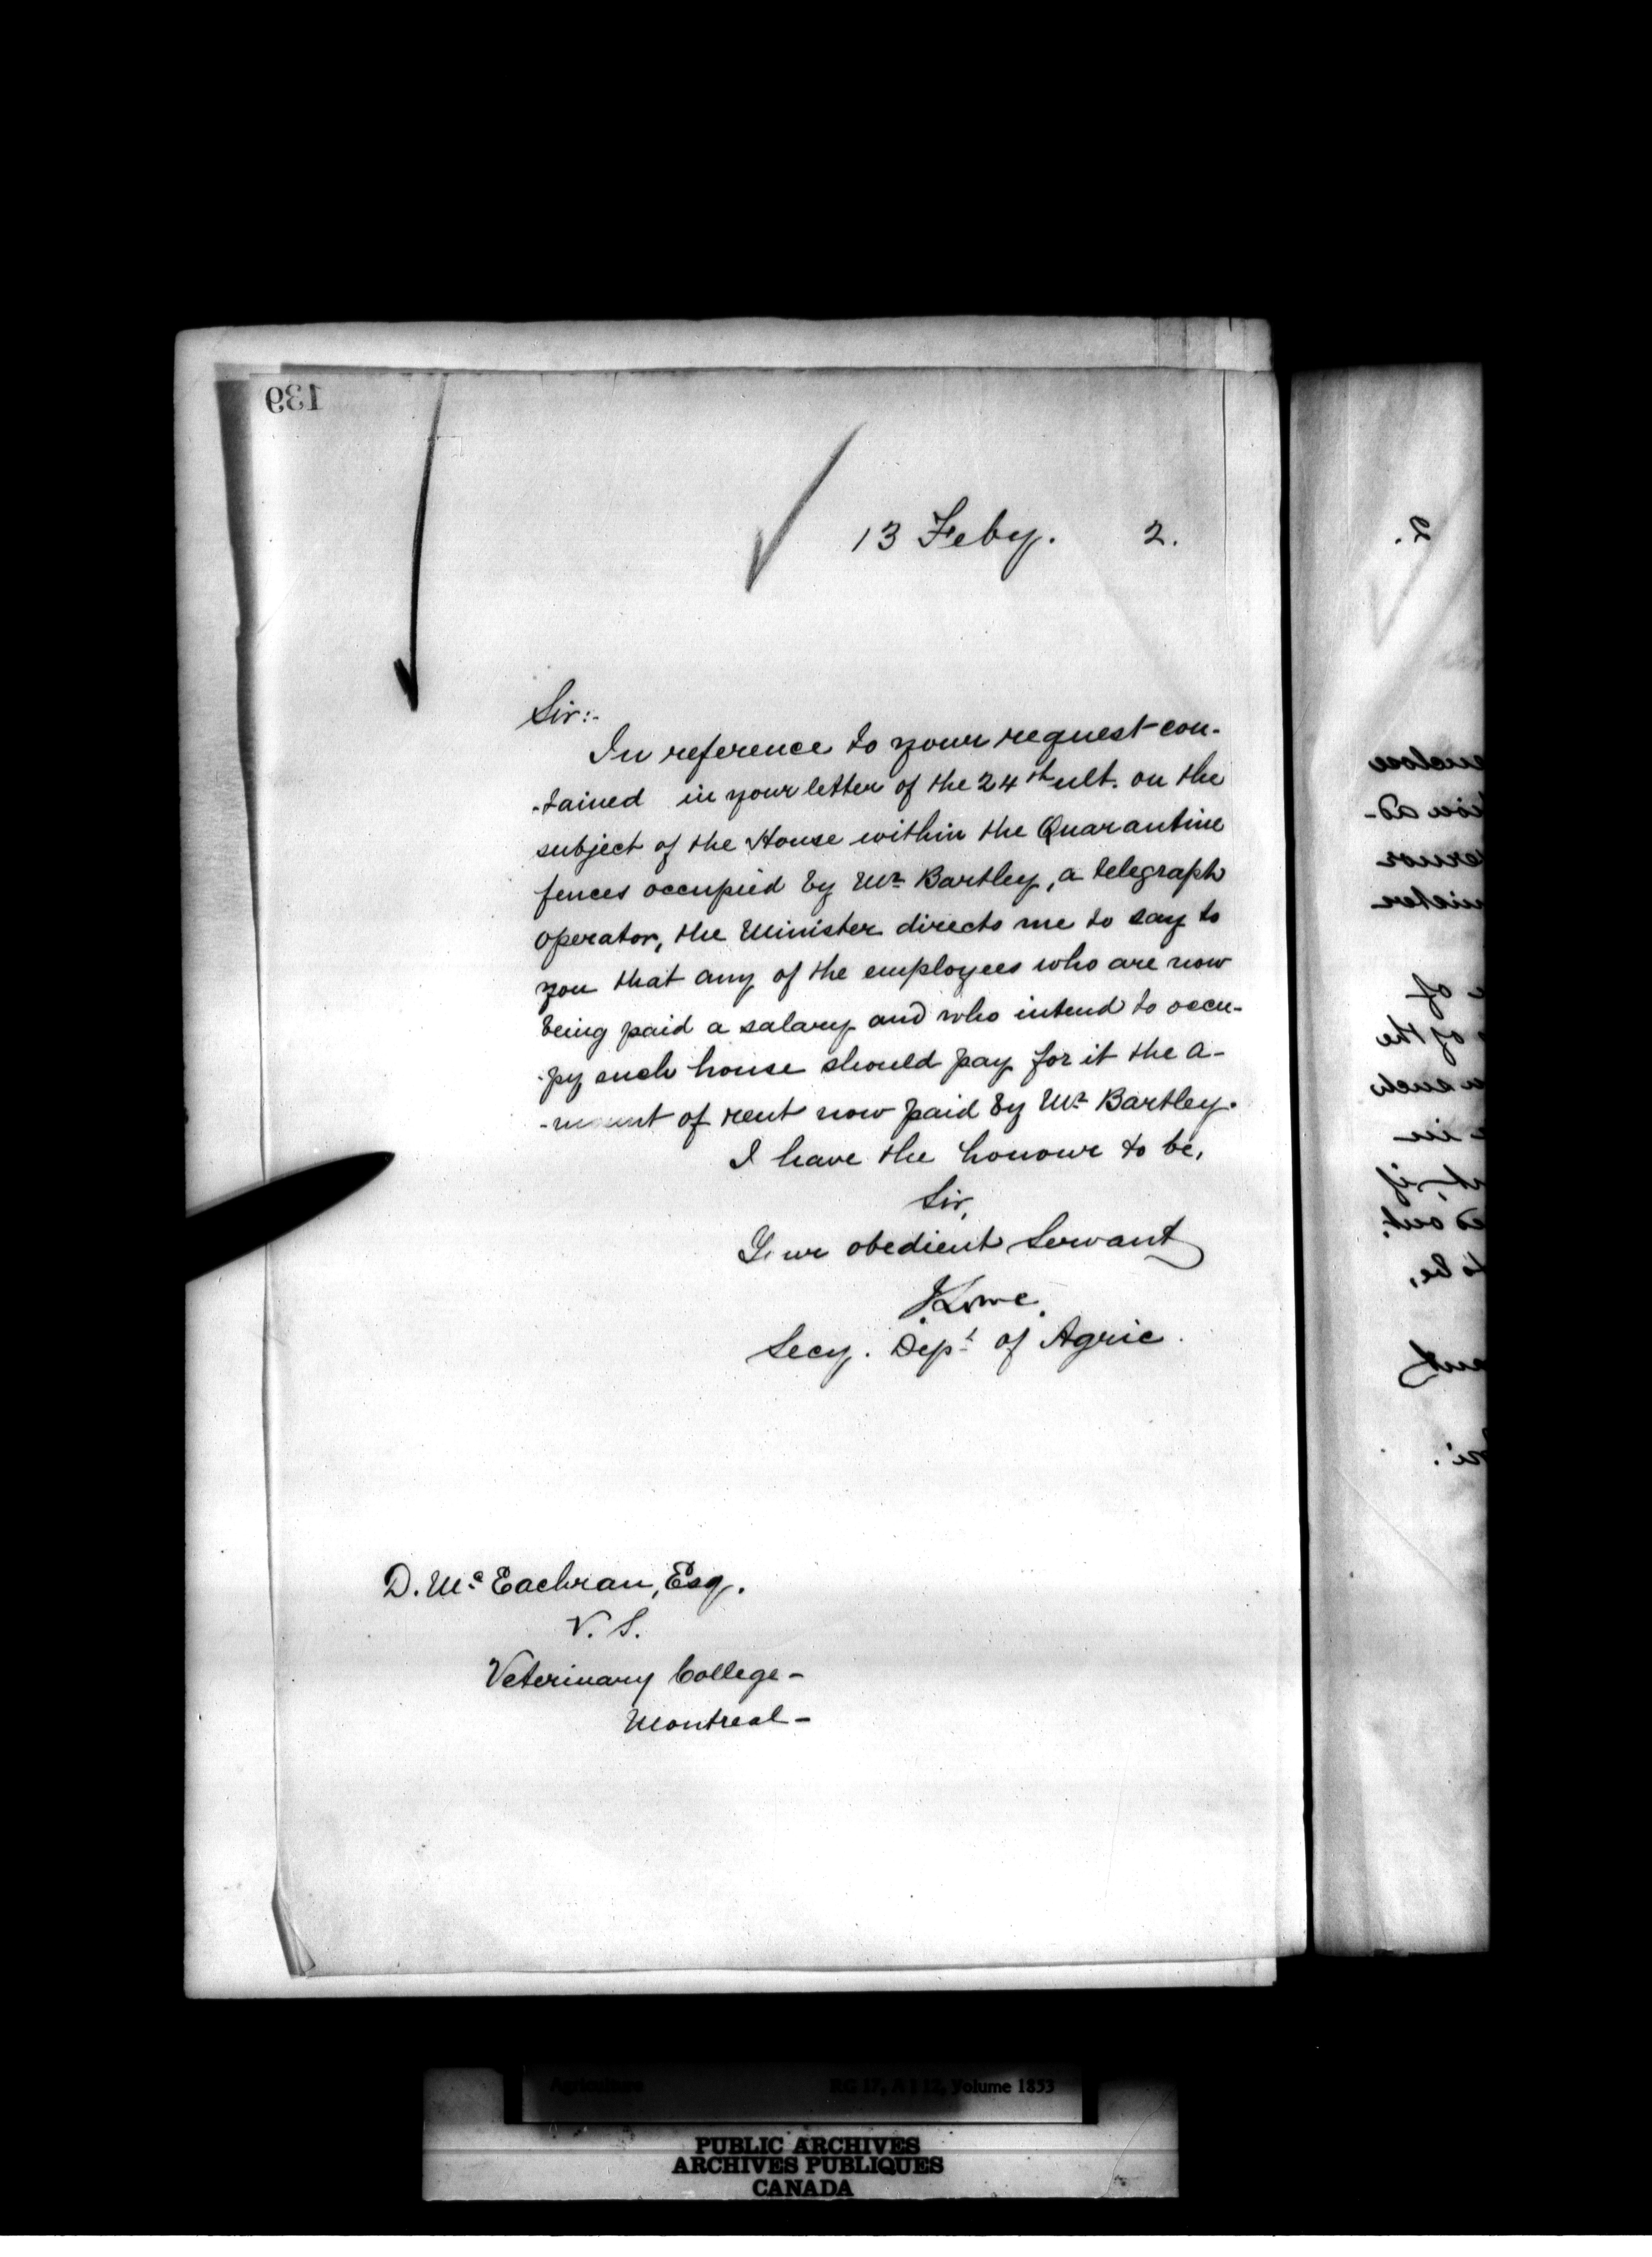 139
13 Feby. 2.
Sir:-
In reference to your request con-
-tained in your letter of the 24th ult. on the
subject of the House within the Quarantine
fences occupied by Mr Bartley, a telegraph
operator, the Minister directs me to say to
you that any of the employees who are now
being paid a salary and who intend to occu-
-py such house should pay for it the a-
-mount of rent now paid by Mr Bartley.
I have the honour to be,
Sir,
Your obedient Servant
J Lowe.
Secy. Dept of Agric.
D. Mc Eachran, Esq.
V. S.
Veterinary College -
Montreal -
2.
enclose
of
of the
such
in
if
out.
to be,
Agriculture RG 17, A I 12, Volume 1853
PUBLIC ARCHIVES
ARCHIVES PUBLIQUES
CANADA